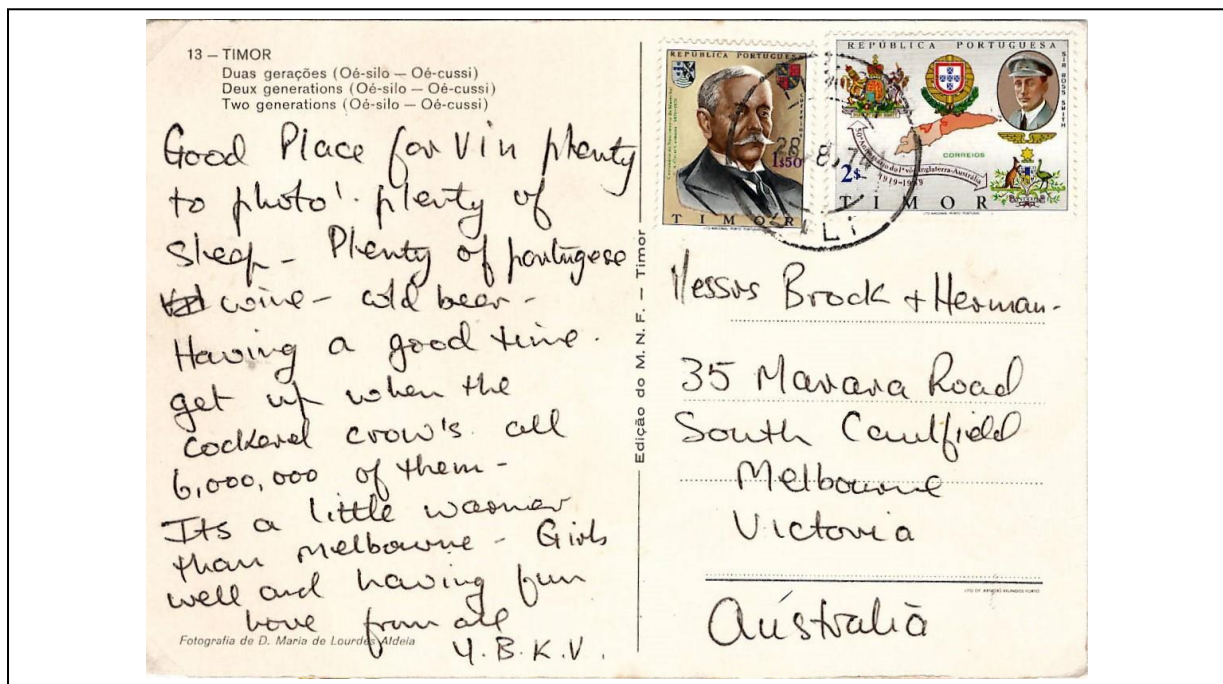 13 — TIMOR
Duas gerações (Oé-silo — Oé-cussi)
Deux generations (Oé-silo — Oé-cussi)
Two generations (Oé-silo — Oé-cussi)
Good Place for Vin plenty
to photo! plenty of
sleep - Plenty of portugese
wine - cold beer -
Having a good time.
get up when the
cockerel crow's all
6,000,000 of them -
Its a little warmer
than Melbourne - Girls
well and having fun
Love from all
Y.B.K.V.
Fotografia de D. Maria de Lourdes Aldeia
Edição do M. N. F. — Timor
REPÚBLICA PORTUGUESA
1$50
TIMOR
REPÚBLICA PORTUGUESA
SIR ROSS SMITH
CORREIOS
50º Aniversário do 1º vôo Inglaterra-Austrália
1919-1969
2$
TIMOR
28 8.74
Messrs Brock + Herman-
35 Marara Road
South Caulfield
Melbourne
Victoria
Australia